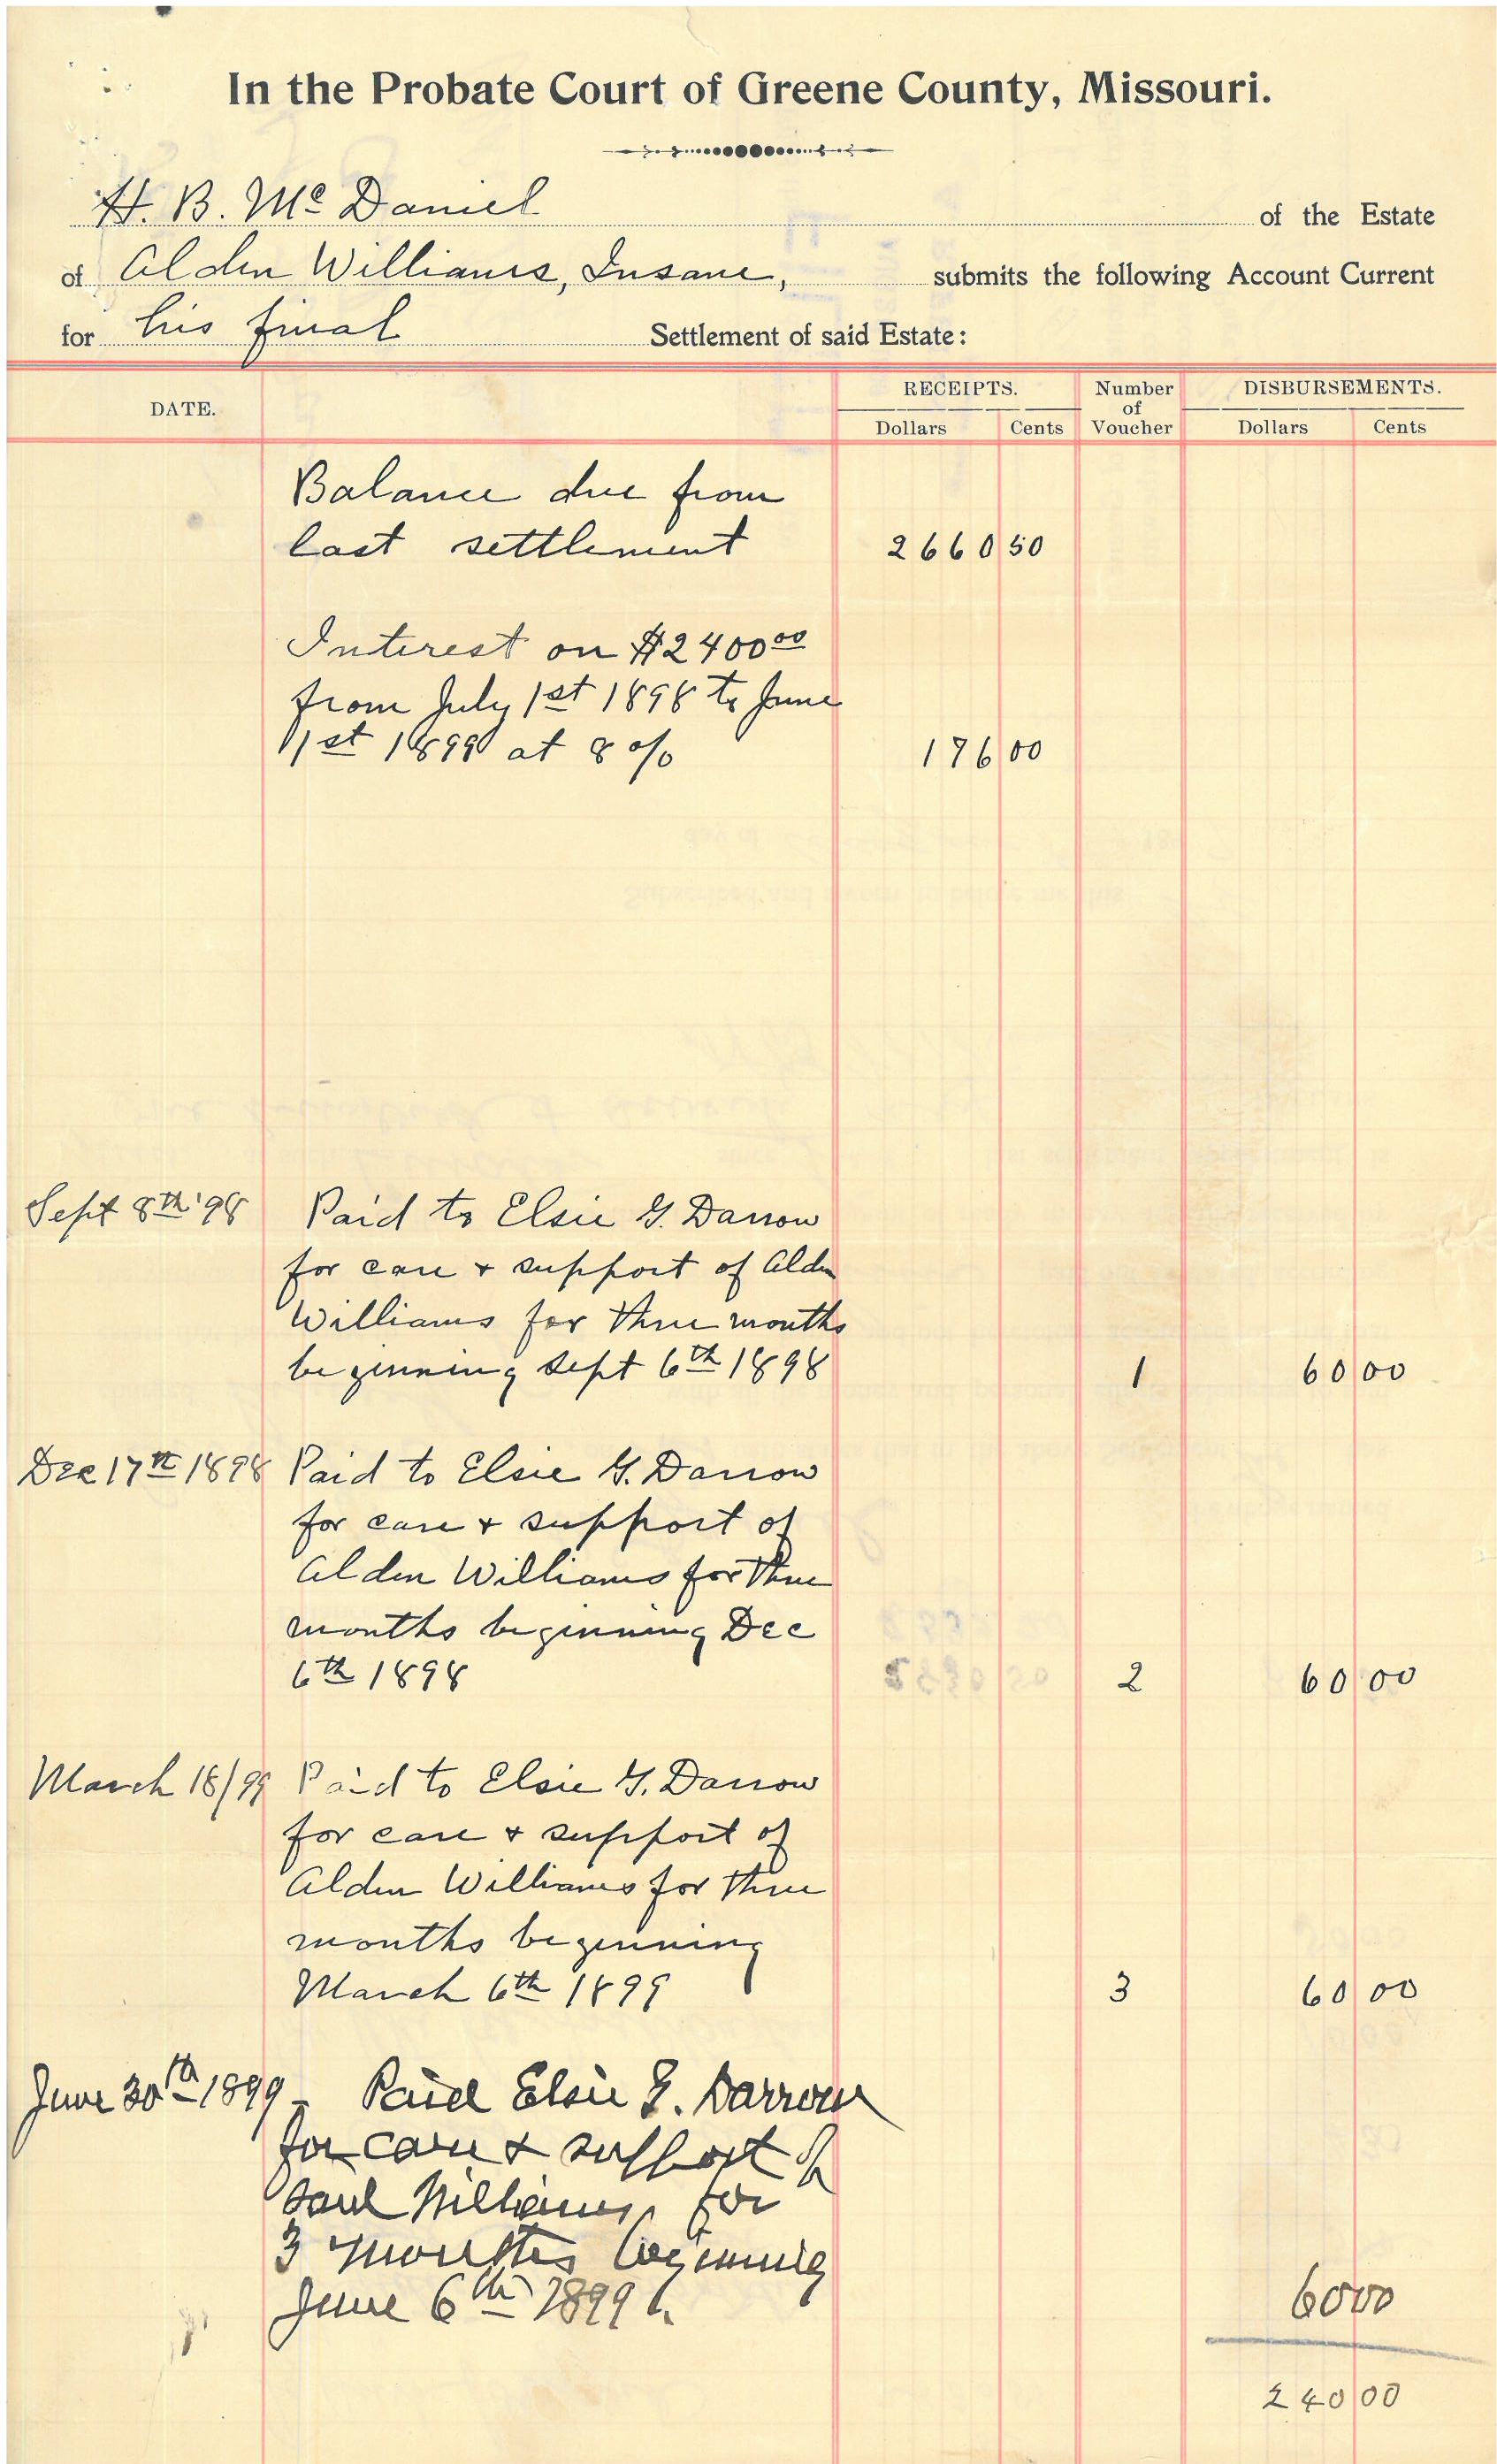 In the Probate Court of Greene County, Missouri.
H. B. Mc Daniel of the Estate
of Alden Williams, Insane, submits the following Account Current
for his final Settlement of said Estate:
DATE. RECEIPTS. Number of Voucher DISBURSEMENTS.
Dollars Cents Dollars Cents
Balance due from
last settlement 2660 50
Interest on $2400 00
from July 1st 1898 to June
1st 1899 at 8 % 176 00
Sept 8th '98 Paid to Elsie G. Darrow
for care + support of Alden
Williams for three months
beginning Sept 6th 1898 1 60 00
Dec 17th 1898 Paid to Elsie G. Darrow
for care + support of
Alden Williams for three
months beginning Dec
6th 1898 2 60 00
March 18/99 Paid to Elsie G. Darrow
for care + support of
Alden Williams for three
months beginning
March 6th 1899 3 60 00
June 30th 1899 - Paid Elsie G. Darrow
for care + support of
said Williams for
3 months beginning
June 6th 1899. 60 00
240 00